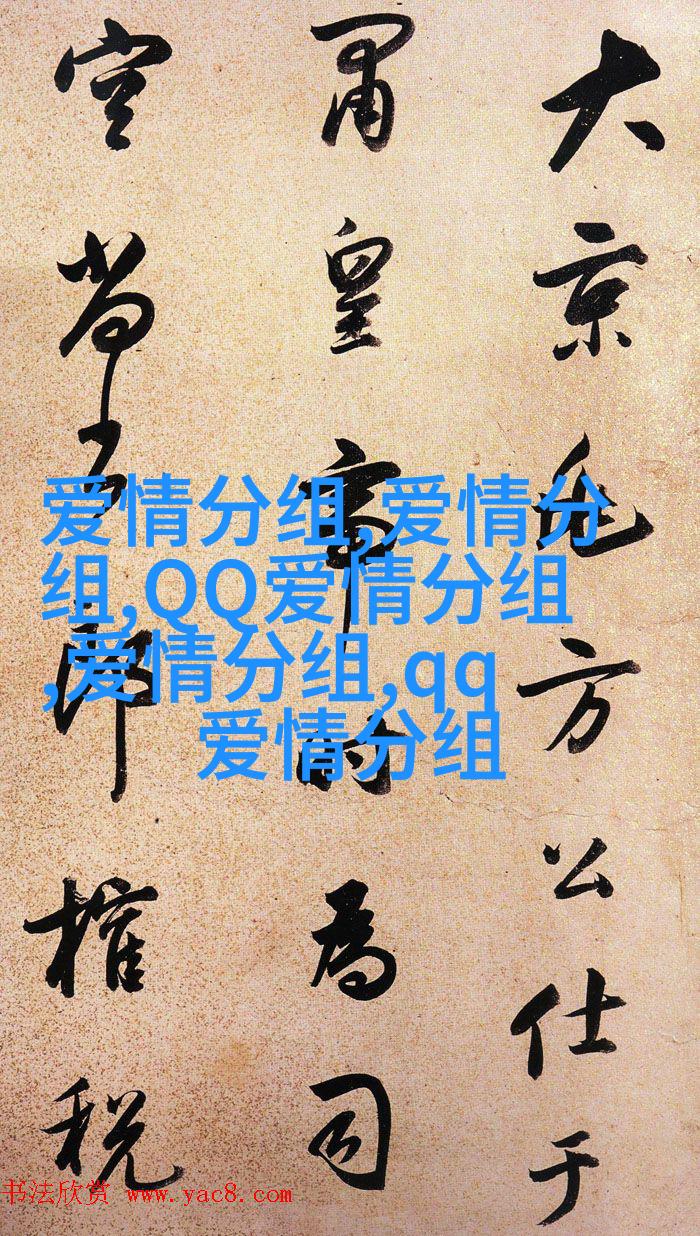 大京兆方公仕于
肅皇帝时為司
空尚书郎榷税
爱情分组,爱情分
组,QQ爱情分组
,爱情分组,qq
爱情分组
书法欣赏 www.yac8.com